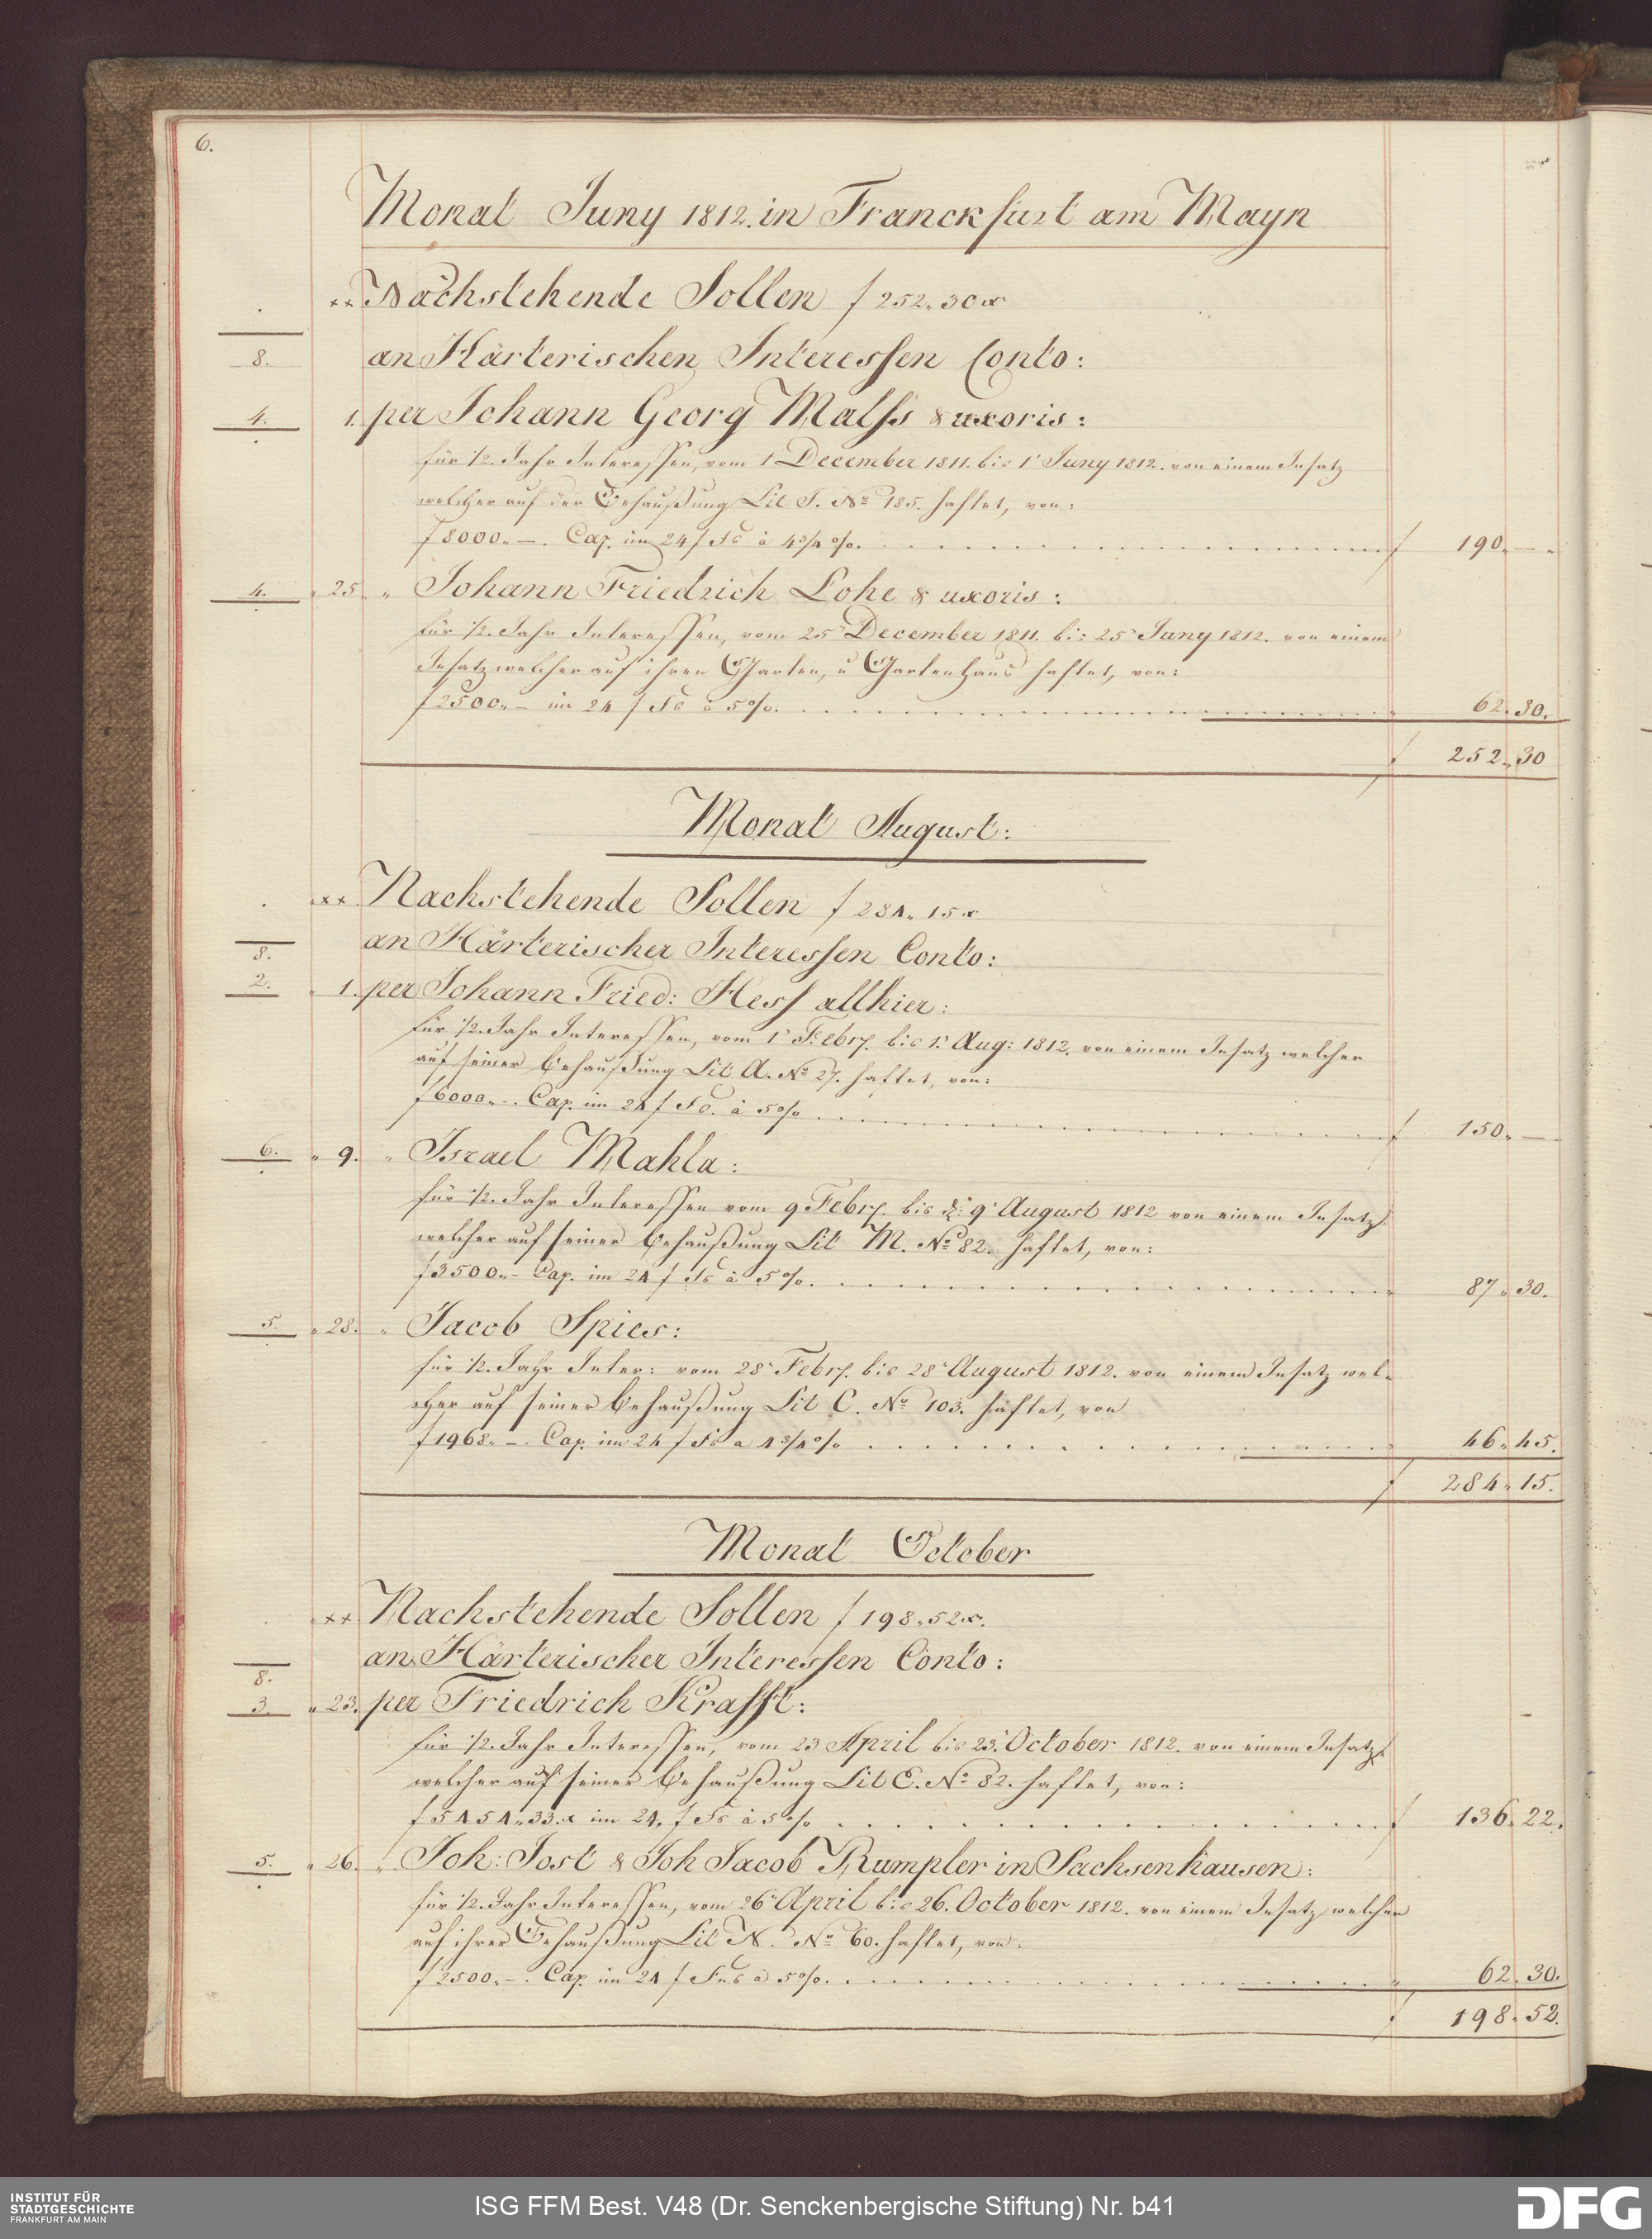 6.
Monat Juny 1812. in Franckfurt am Mayn
Nachstehende Sollen f 252. 30 x
8. an Härterischen Interessen Conto:
4. 1. per Johann Georg Malss & uxoris:
für 1/2. Jahr Interessen, vom 1 December 1811. bis 1' Juny 1812. von einem Insatz
welcher auf der Behaußung Lit J. No 185. haftet, von:
f 8000. —. Cap. im 24 f Fs à 4 3/4 %. f 190. —
4. " 25. " Johann Friedrich Lohe & uxoris:
für 1/2. Jahr Interessen, vom 25' December 1811. bis 25' Juny 1812. von einem
Insatz welcher auf ihren Garten, u Gartenhaus haftet, von:
f 2500. — im 24 f Fs à 5 %. 62. 30.
f 252. 30
Monat August:
Nachstehende Sollen f 284. 15 x
8. an Härterischer Interessen Conto:
2. " 1. per Johann Fried: Hess allhier:
für 1/2. Jahr Interessen, vom 1' Febry. bis 1' Aug: 1812. von einem Insatz welcher
auf seiner Behaußung Lit A. No 27. haftet, von:
f 6000. —. Cap. im 24 f Fs. à 5 % f 150. —
6. " 9. " Israel Mahla:
für 1/2. Jahr Interessen vom 9 Febry. bis d: 9' August 1812 von einem Insatz
welcher auf seiner Behaußung Lit M. No 82. haftet, von:
f 3500. — Cap. im 24 f Fs à 5 %. 87. 30.
5. " 28. " Jacob Spies:
für 1/2. Jahr Inter: vom 28' Febry. bis 28' August 1812. von einem Insatz wel-
cher auf seiner Behaußung Lit C. No 103. haftet, von
f 1968. —. Cap. im 24 f Fs a 4 3/4 % 46. 45.
f 284. 15.
Monat October
Nachstehende Sollen f 198. 52 x.
an Härterischer Interessen Conto:
8.
3. " 23. per Friedrich Krafft:
für 1/2. Jahr Interessen, vom 23 April bis 23' October 1812. von einem Insatz
welcher auf seiner Behaußung Lit E. No 82. haftet, von:
f 5454. 33. x im 24. f Fs à 5 % f 136. 22.
5. " 26. " Joh: Jost & Joh Jacob Rumpler in Sachsenhausen:
für 1/2. Jahr Interessen, vom 26' April bis 26. October 1812. von einem Insatz welcher
auf ihrer Behaußung Lit N. No 60. haftet, von:
f 2500. —. Cap. im 24 f Fus à 5 %. 62. 30.
f 198. 52.
INSTITUT FÜR
STADTGESCHICHTE
FRANKFURT AM MAIN
ISG FFM Best. V48 (Dr. Senckenbergische Stiftung) Nr. b41
DFG